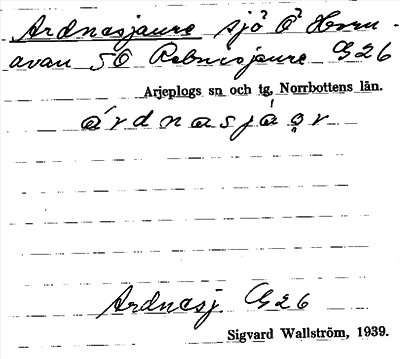 Ardnasjaure sjö Ö Horn-
avan SO Rebnisjaure G26
Arjeplogs sn och tg, Norrbottens län.
árdnasjáọr
Ardnasj. G26
Sigvard Wallström, 1939.